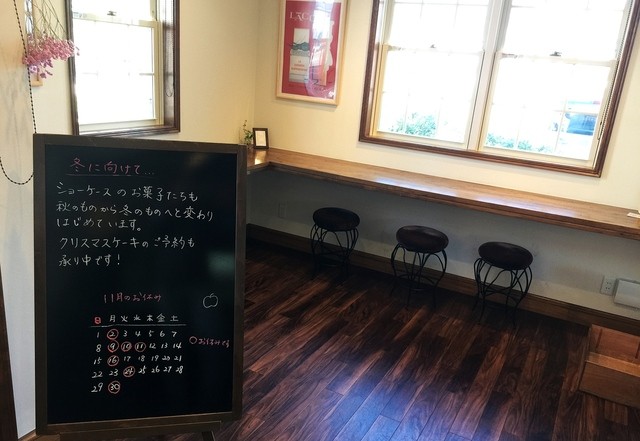 冬に向けて…
ショーケースのお菓子たちも
秋のものから冬のものへと変わり
はじめています。
クリスマスケーキのご予約も
承り中です!
11月のお休み
日 月 火 水 木 金 土
1 2 3 4 5 6 7
8 9 10 11 12 13 14
15 16 17 18 19 20 21
22 23 24 25 26 27 28
29 30